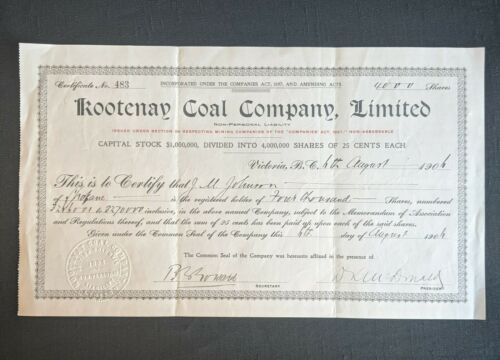 Certificate No. 483
INCORPORATED UNDER THE COMPANIES ACT, 1897, AND AMENDING ACTS.
4000 Shares
Kootenay Coal Company, Limited
NON-PERSONAL LIABILITY
ISSUED UNDER SECTION RESPECTING MINING COMPANIES OF THE "COMPANIES ACT, 1897," NON-ASSESSABLE
CAPITAL STOCK $1,000,000, DIVIDED INTO 4,000,000 SHARES OF 25 CENTS EACH.
Victoria, B.C. 6th August 1904
This is to Certify that J. M. Johnson
of Spokane is the registered holder of Four thousand Shares, numbered
inclusive, in the above named Company, subject to the Memorandum of Association
and Regulations thereof, and that the sum of 25 cents has been paid up upon each of the said shares.
Given under the Common Seal of the Company this 6th day of August 1904
The Common Seal of the Company was hereunto affixed in the presence of
SECRETARY
PRESIDENT